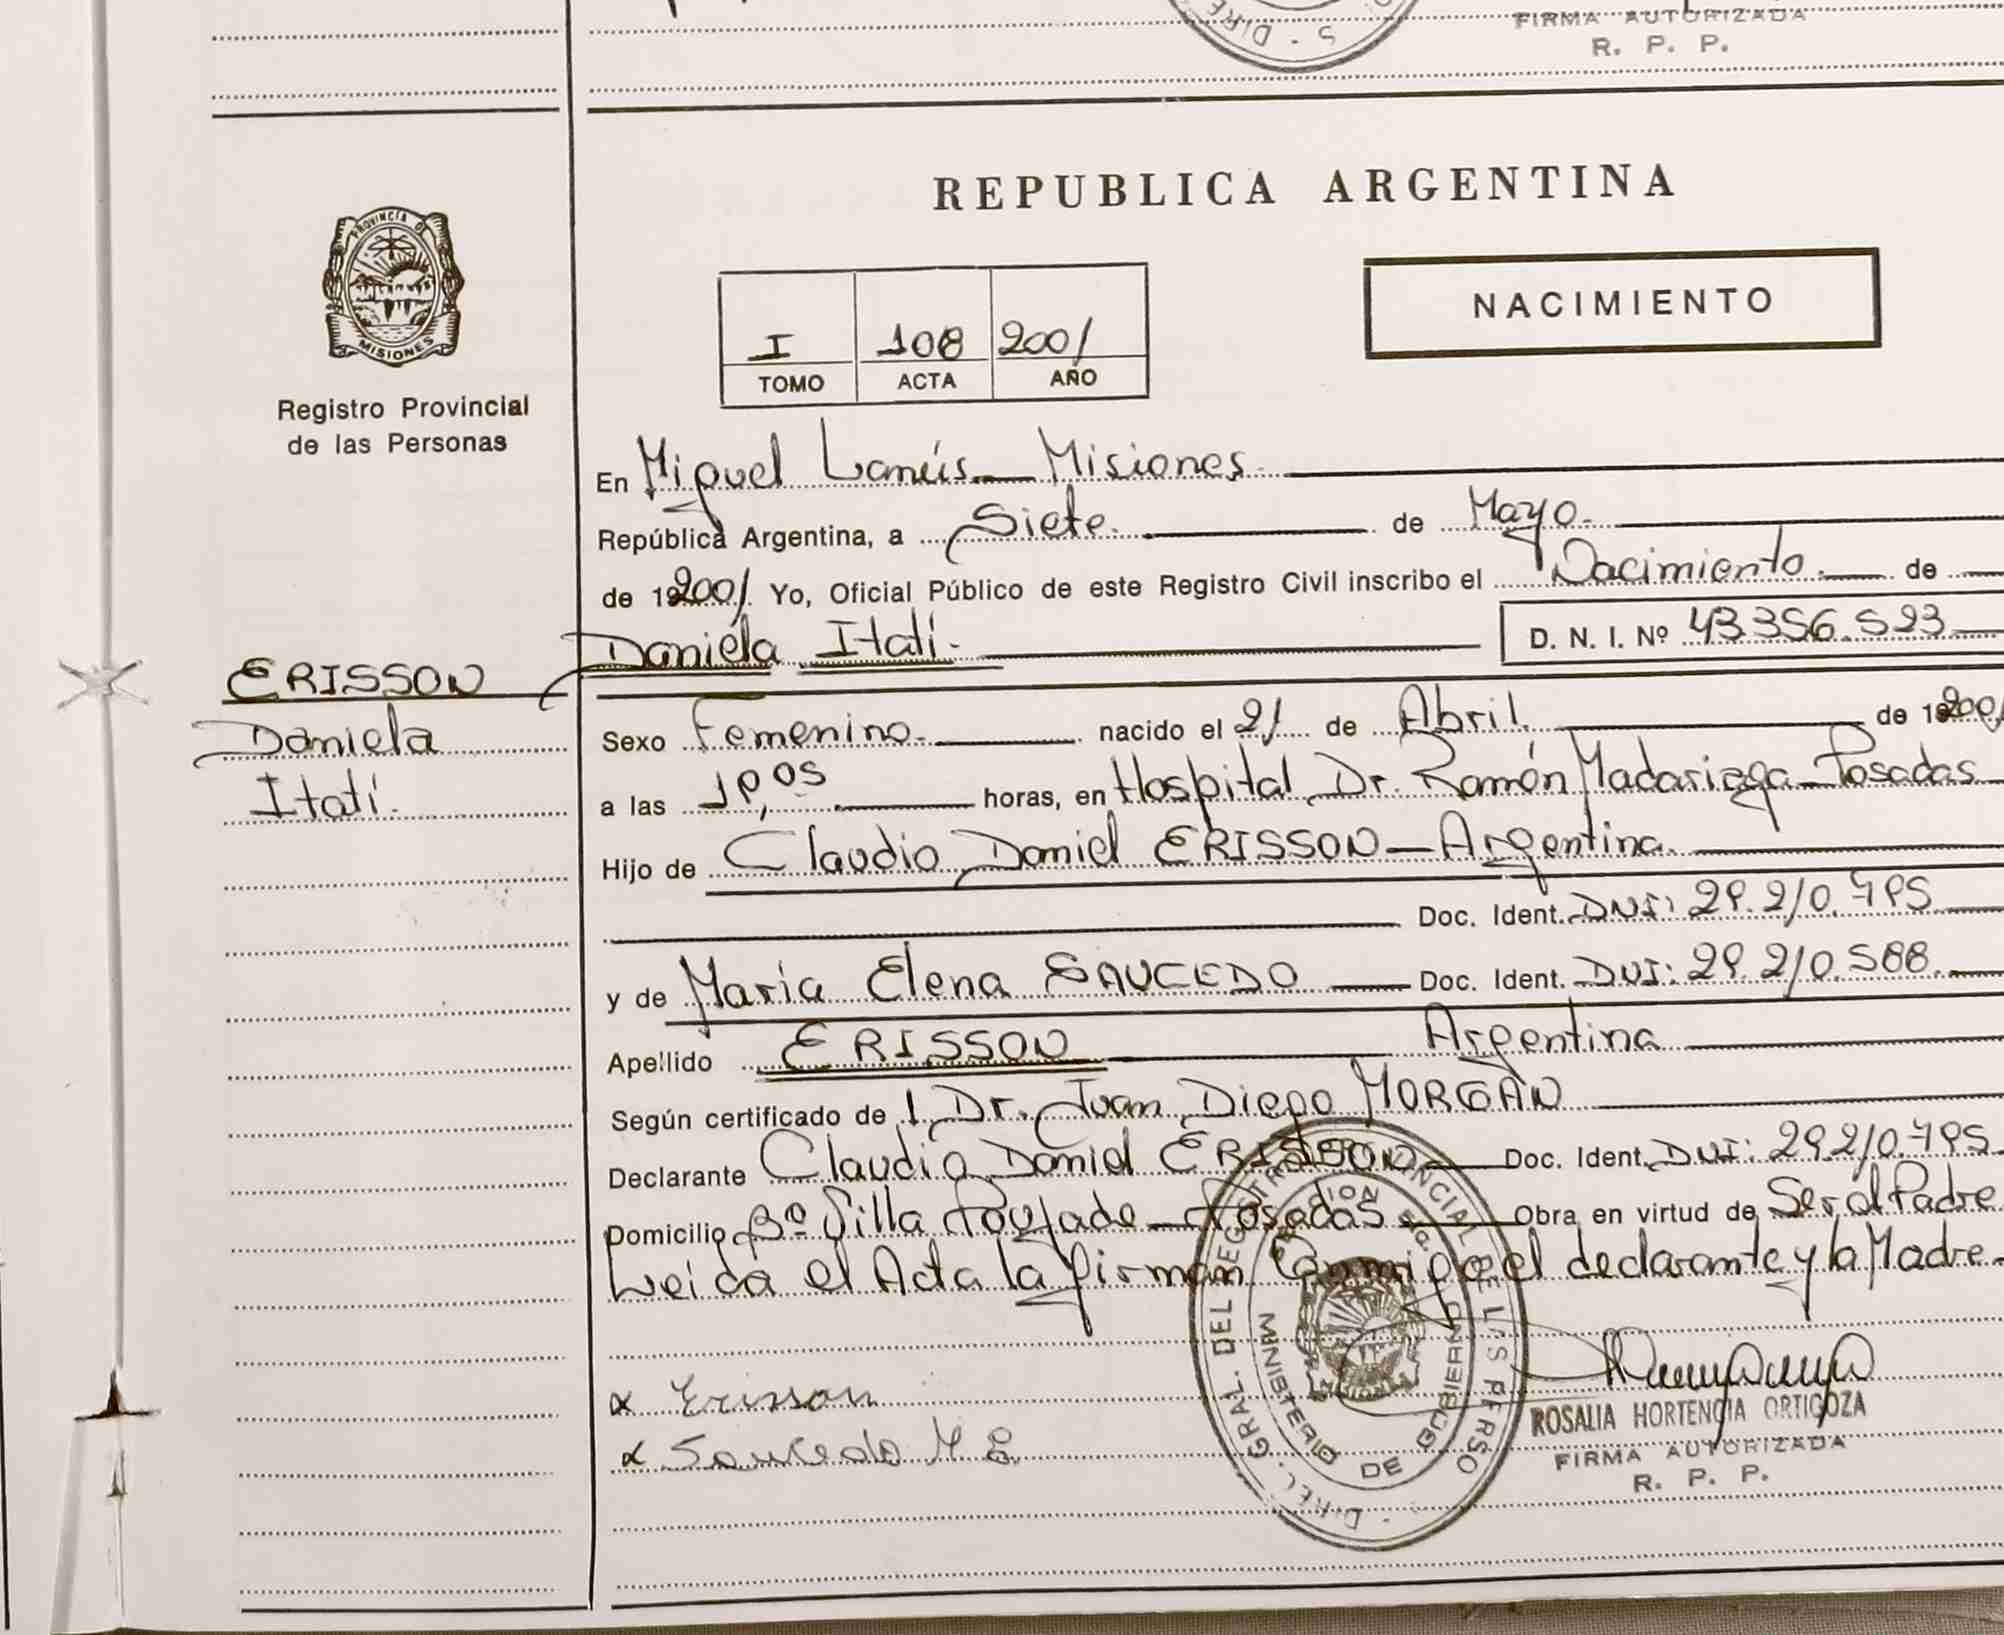 FIRMA AUTORIZADA
R. P. P.
PROVINCIA DE
MISIONES
Registro Provincial
de las Personas
REPUBLICA ARGENTINA
NACIMIENTO
I 108 2001
TOMO ACTA AÑO
En Miguel Lanús — Misiones
República Argentina, a Siete de Mayo.
de 192001 Yo, Oficial Público de este Registro Civil inscribo el Nacimiento. de
Daniela Itatí. D. N. I. Nº 43.356.523
ERISSON
Daniela
Itatí.
Sexo Femenino. nacido el 21 de Abril de 192001
a las horas, en Hospital Dr. Ramón Madariaga - Posadas
Hijo de Claudio Daniel ERISSON — Argentina
Doc. Ident. DNI: 29.210.795
y de María Elena SAUCEDO Doc. Ident. DNI: 29.210.588.
Apellido ERISSON Argentina
Según certificado de Dr. Juan Diego MORGAN
Declarante Claudio Daniel ERISSON Doc. Ident. DNI: 29.210.795
Domicilio Bº Villa Poujade — Posadas Obra en virtud de Ser el Padre
Leída el Acta la firman Conmigo el declarante y la Madre
x Erisson
x Saucedo M E
DIREC. GRAL. DEL REGISTRO PROVINCIAL DE LAS PERSO
MINISTERIO DE GOBIERNO
ROSALIA HORTENCIA ORTIGOZA
FIRMA AUTORIZADA
R. P. P.